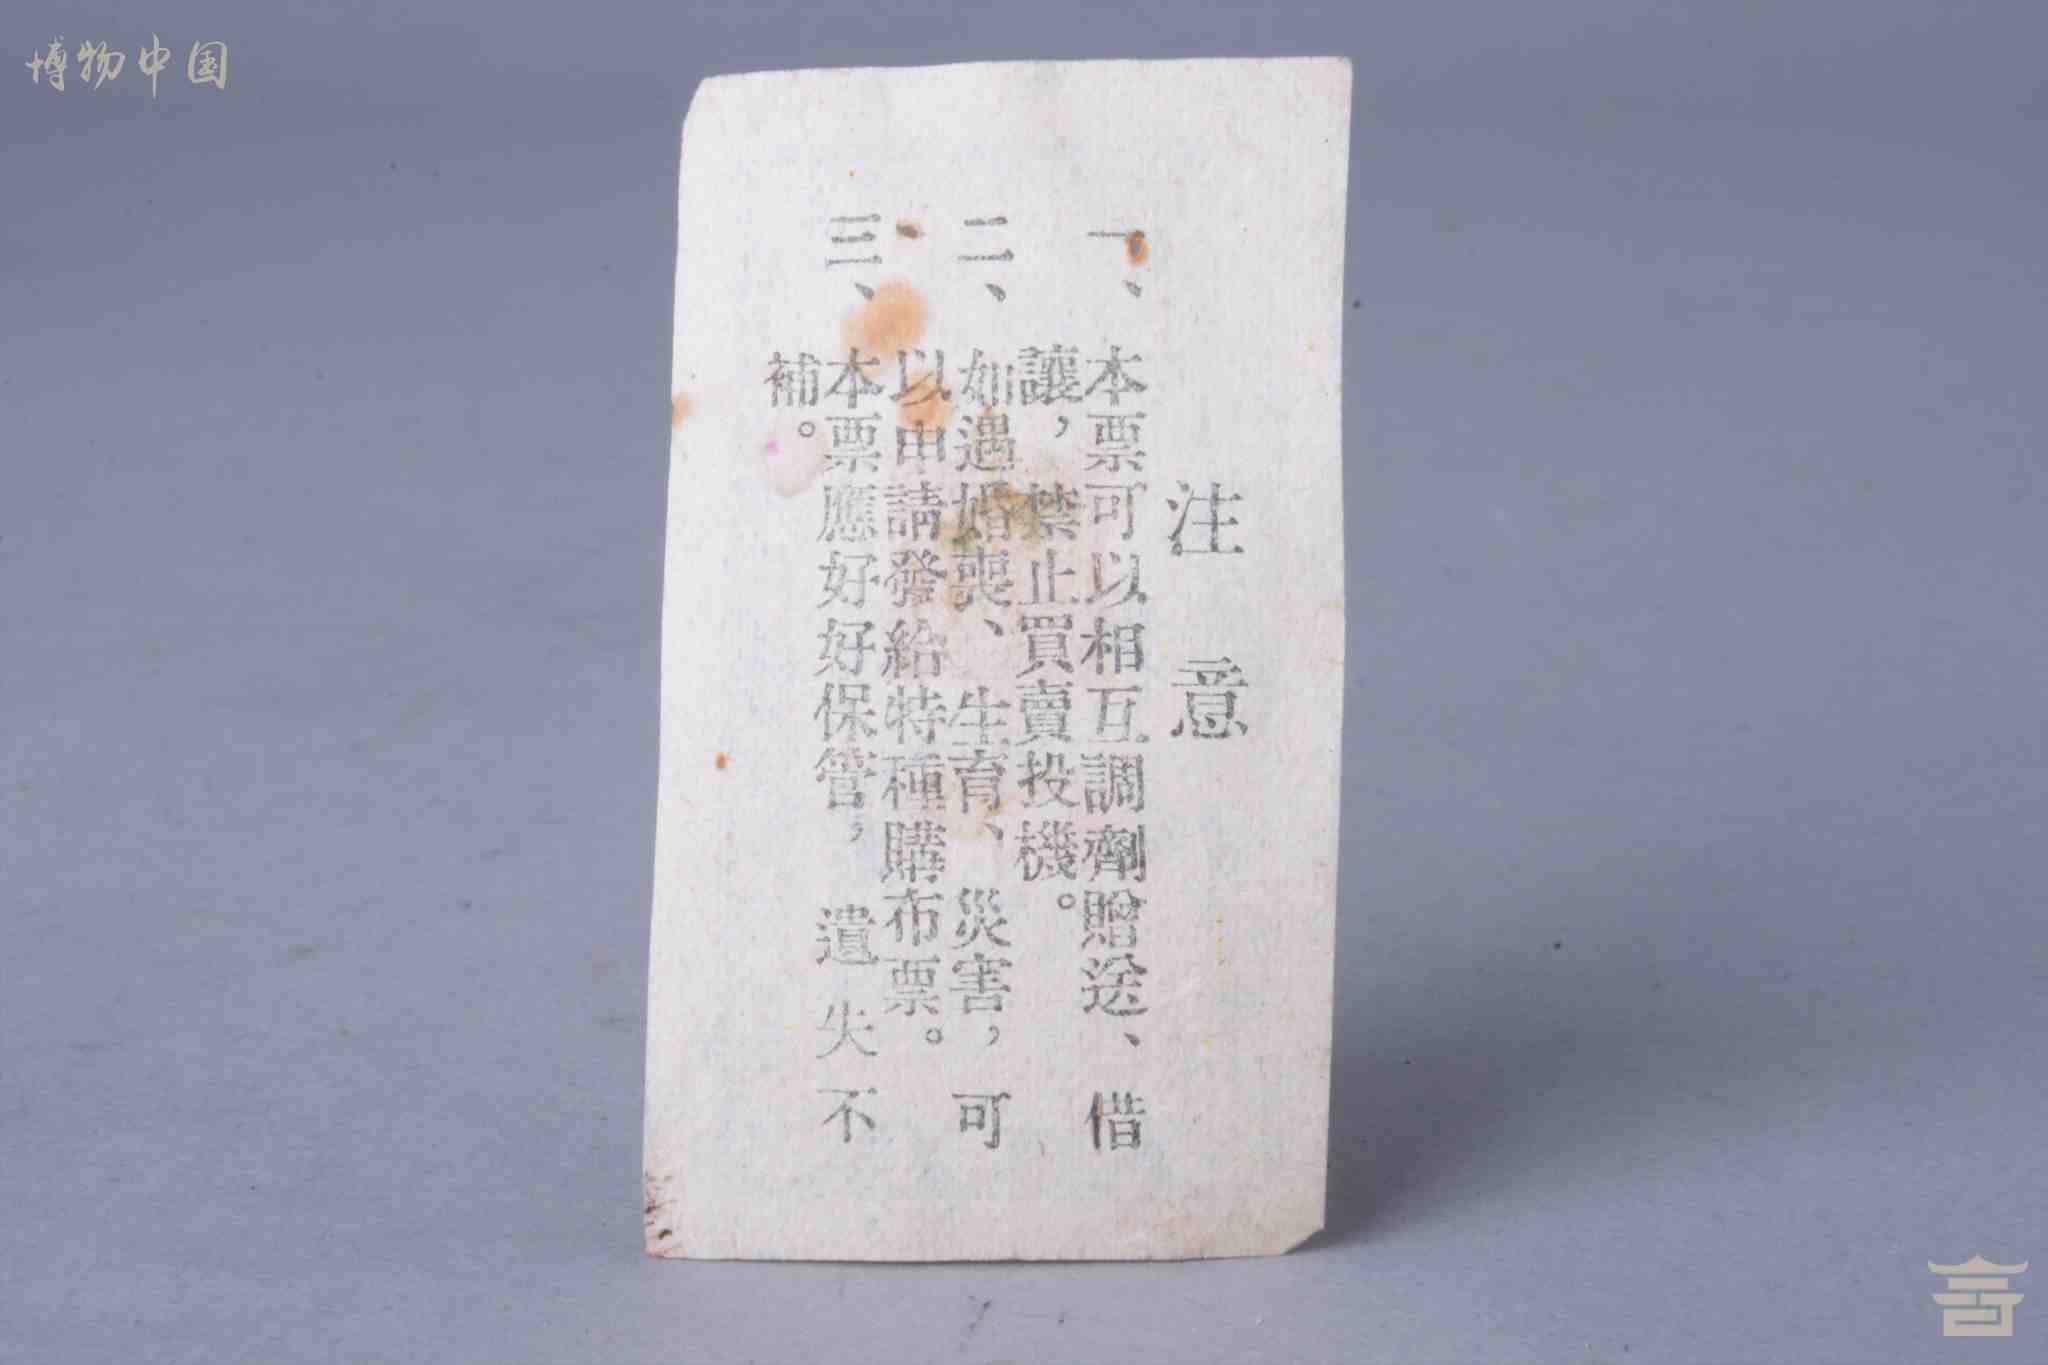 博物中国
注意
一、本票可以相互調劑贈送、借
讓，禁止買賣投機。
二、如遇婚喪、生育、災害，可
以申請發給特種購布票。
三、本票應好好保管，遺失不
補。